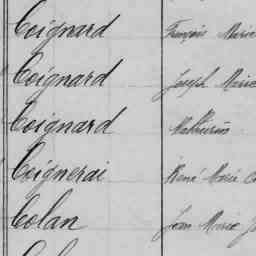 Coignard François Marie
Coignard Joseph Marie
Coignard Mathurin
Coignerai René Marie
Colan Jean Marie